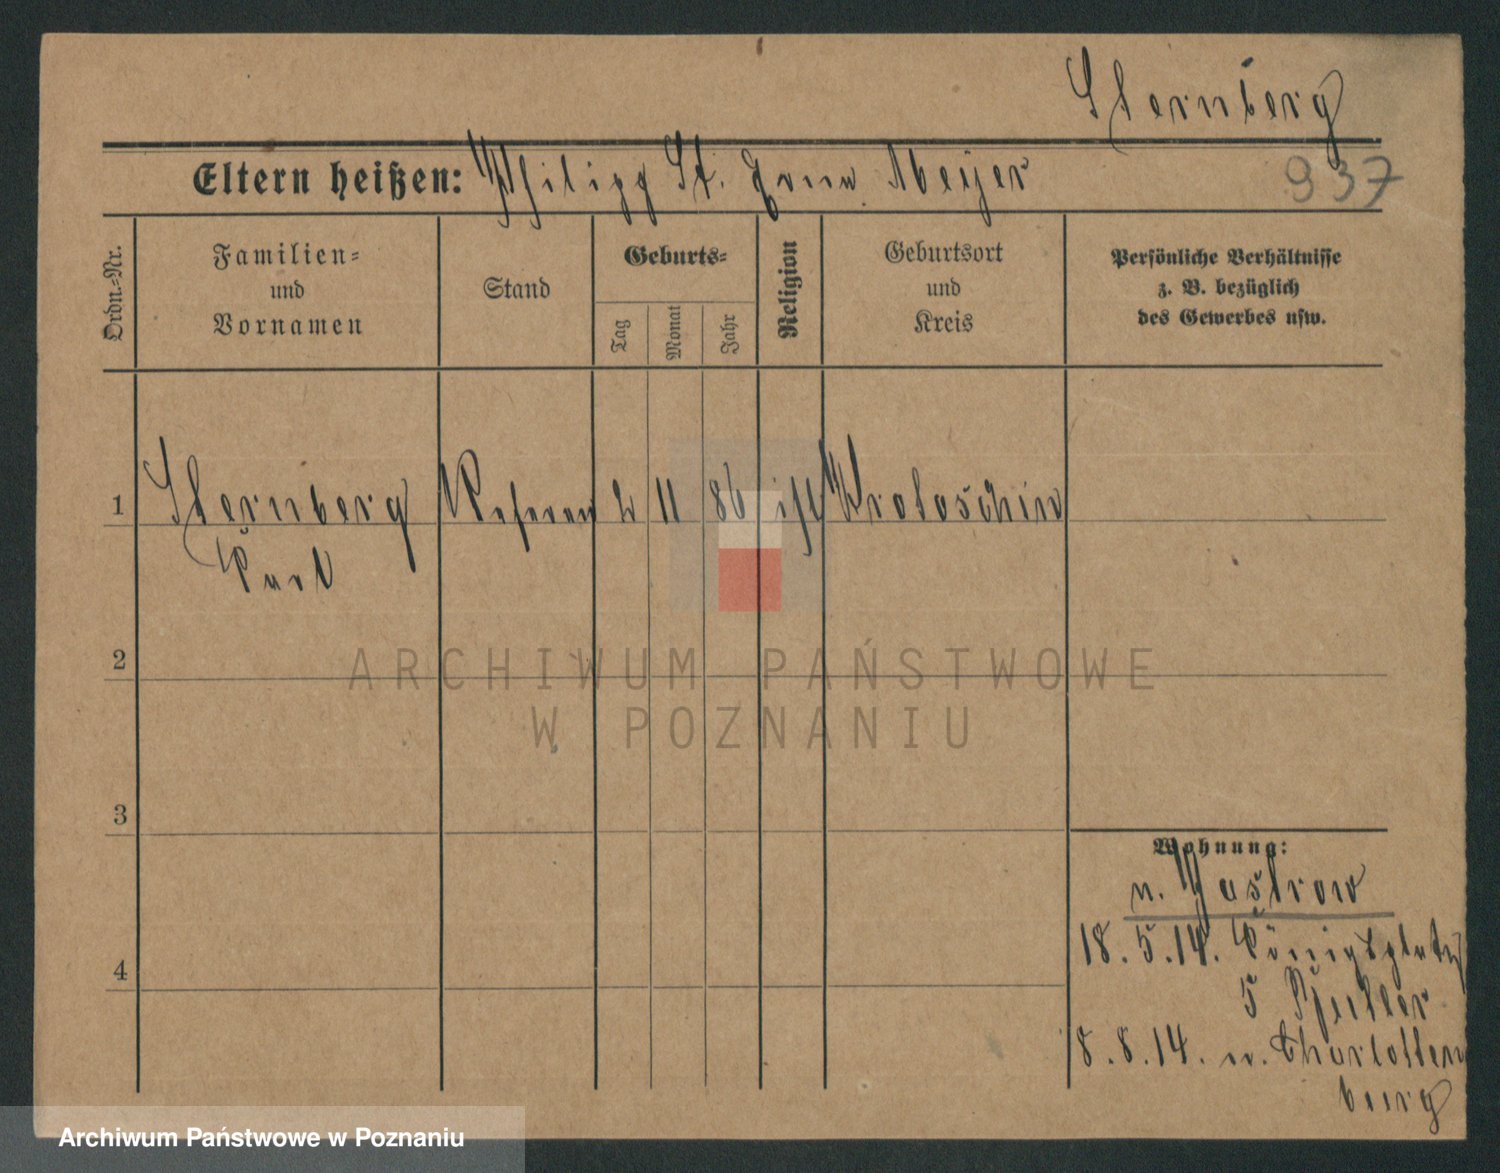 Sternberg
Eltern heißen: Philipp St. Meyer
937
Ordn.-Nr.
Familien-
und
Vornamen
Stand
Geburts-
Tag
Monat
Jahr
Religion
Geburtsort
und
Kreis
Persönliche Verhältnisse
z. B. bezüglich
des Gewerbes usw.
1 Sternberg Referen 2 11 86 isr Krotoschin
Kurt
2
3
4
Wohnung:
n. Jastrow
18.5.14. Königsplatz
5
8.8.14. n. Charlotten
burg
ARCHIWUM PAŃSTWOWE
W POZNANIU
Archiwum Państwowe w Poznaniu